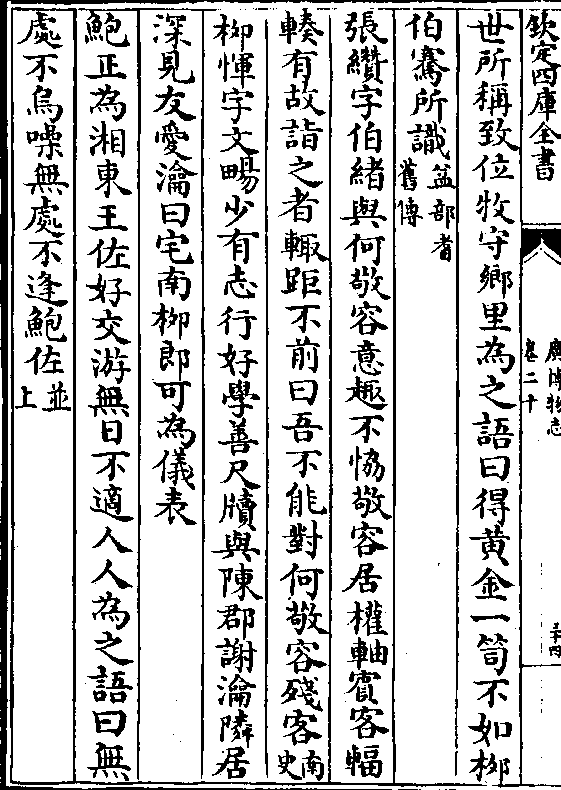 欽定四庫全書
廣博物志
卷二十
二十四
世所稱致位牧守鄉里為之語曰得黃金一笥不如柳
伯騫所識益部耆舊傳
張纘字伯緒與何敬容意趣不恊敬容居權軸賓客輻
輳有故詣之者輙距不前曰吾不能對何敬容殘客南史
柳惲字文畼少有志行好學善尺牘與陳郡謝瀹隣居
深見友愛瀹曰宅南柳郎可為儀表
鮑正為湘東王佐好交游無日不適人人為之語曰無
處不烏噪無處不逢鮑佐並上